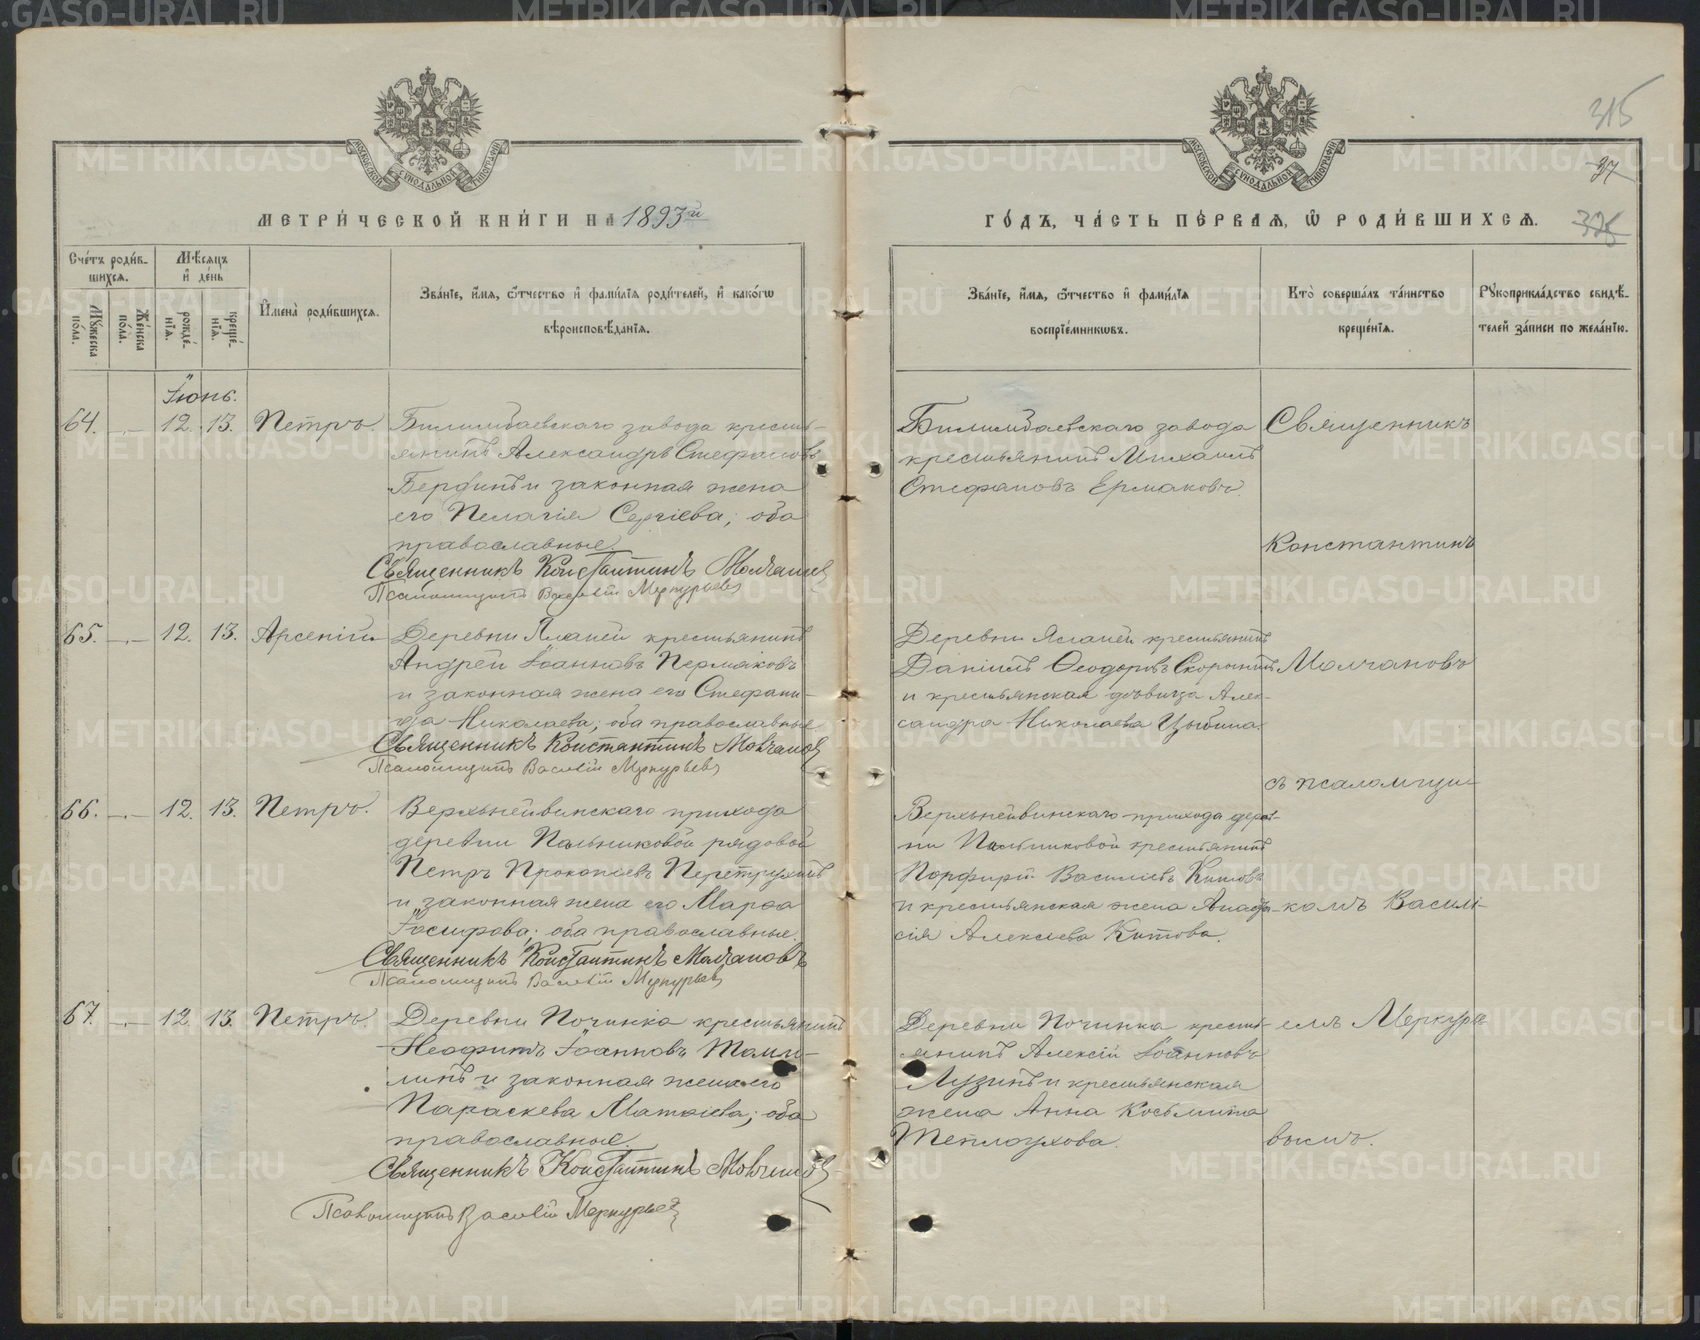 315
37
328
МЕТРИ́ЧЕСКОЙ КНИ́ГИ НА 1893й
ГО́ДЪ, ЧА́СТЬ ПЕ́РВАЯ, Ѽ РОДИ́ВШИХСЯ.
Сче́тъ роди́в-
шихся.
Му́жеска по́ла.
Же́нска по́ла.
Мѣ́сяцъ
и де́нь
рожде́-
нїя.
креще́-
нїя.
И҆мена̀ роди́вшихся.
Зва́нїе, и҆́мя, ѻ҆́тчество и҆ фами́лїя роди́телей, и҆ како́гѡ
вѣроисповѣ́данїя.
Зва́нїе, и҆́мя, ѻ҆́тчество и҆ фами́лїя
воспрїе́мникѡвъ.
Кто̀ соверша́лъ та́инство
креще́нїя.
Рꙋкоприкла́дство свидѣ́-
телей за́писи по жела́нїю.
Іюнь.
64. — 12. 13. Петръ.
Билимбаевскаго завода кресть-
янинъ Александръ Стефановъ
Бердинъ и законная жена
его Пелагія Сергіева; оба
православные.
Священникъ Константинъ Молчановъ
Псаломщикъ Василій Меркурьевъ
Билимбаевскаго завода
крестьянинъ Михаилъ
Стефановъ Ермаковъ.
Священникъ
Константинъ
65. — 12. 13. Арсеній
Деревни Яланей крестьянинъ
Андрей Іоанновъ Пермяковъ
и законная жена его Стефани-
да Николаева; оба православные
Священникъ Константинъ Молчановъ
Псаломщикъ Василій Меркурьевъ
Деревни крестьянинъ
Даніилъ Ѳеодоровъ
и крестьянская дѣвица Алек-
сандра Николаева
Молчановъ
съ псаломщи-
66. — 12. 13. Петръ.
Верхнейвинскаго прихода
деревни Пальниковой рядовой
Петръ Прокопіевъ Перетрухинъ
и законная жена его Марѳа
оба православные.
Священникъ Константинъ Молчановъ
Псаломщикъ Василій Меркурьевъ
Верхнейвинскаго прихода дерев-
ни Пальниковой крестьянинъ
Порфирій Василіевъ Китовъ
и крестьянская жена Анаста-
сія Алексіева Китова.
комъ Василі-
67. — 12. 13. Петръ.
Деревни Починка крестьянинъ
Неофитъ Іоанновъ Томи-
линъ и законная жена его
Параскева Матѳіева; оба
православные.
Священникъ Константинъ Молчановъ
Псаломщикъ Василій Меркурьевъ
Деревни Починка кресть-
янинъ Алексій Іоанновъ
Лузинъ и крестьянская
жена Анна Косьмина
Теплоухова.
емъ Меркурь-
вымъ.